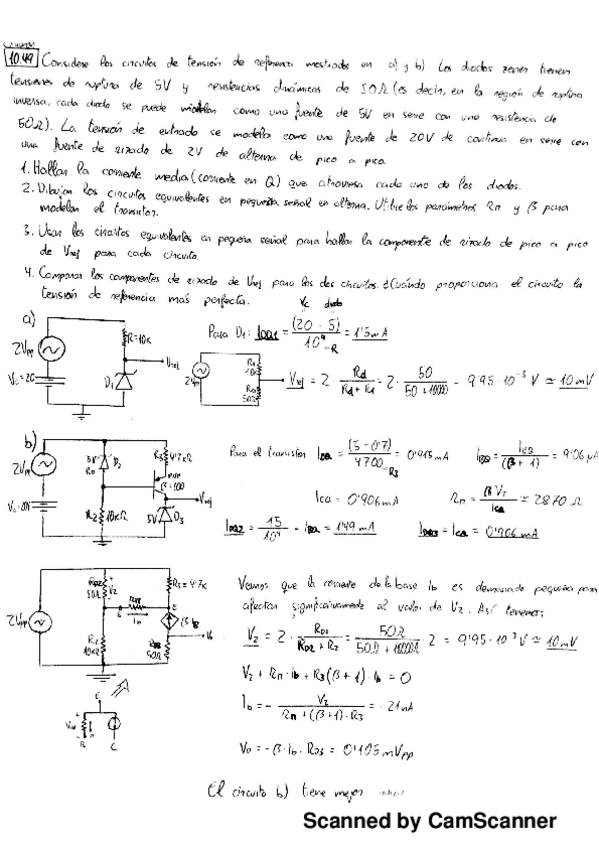 10.49 Considere los circuitos de tensión de referencia mostrados en a) y b). Los diodos zener tienen
tensiones de ruptura de 5V y resistencias dinámicas de 50Ω (es decir, en la región de ruptura
inversa, cada diodo se puede modelar como una fuente de 5V en serie con una resistencia de
50Ω). La tensión de entrada se modela como una fuente de 20V de continua en serie con
una fuente de rizado de 2V de alterna de pico a pico.
1. Hallar la corriente media (corriente en Q) que atraviesa cada uno de los diodos.
2. Dibujar los circuitos equivalentes en pequeña señal en alterna. Utilice los parámetros Rπ y β para
modelar el transistor.
3. Usar los circuitos equivalentes en pequeña señal para hallar la componente de rizado de pico a pico
de Vref para cada circuito.
4. Comparar las componentes de rizado de Vref para los dos circuitos. ¿Cuándo proporciona el circuito la
tensión de referencia más perfecta.
a)
Vc diodo
R=10K
Para D1: IDQ1 = (20 - 5) / 10⁴→R = 1'5mA
2Vpp
Vref
Vc=20
D1
R1 10K
Rd 50Ω
Vref = 2 · Rd / (Rd + R1) = 2 · 50 / (50 + 10000) = 9'95·10⁻³ V ≃ 10mV
b)
2Vpp
5V D2
R3 4'7KΩ
PNP
β=100
Vref
R2 10KΩ
5V D3
Para el transistor IEQ = (5 - 0'7) / 4700→R3 = 0'915mA
IBQ = IEQ / (β+1) = 9'06 μA
ICQ = 0'906mA
Rπ = βVT / ICQ ≃ 2870 Ω
IDQ2 = 15 / 10⁴ - IBQ = 1'49mA
IDQ3 = ICQ = 0'906mA
2Vpp
RD2 50Ω
V2
Rπ
R3=4'7K
B
Ib
E
βIB
R2 10KΩ
50Ω
V0
E
B
C
Vemos que la corriente de la base ib es demasiado pequeña para
afectar significativamente al valor de V2. Así tenemos:
V2 = 2 · RD2 / (RD2 + R2) = 50Ω / (50Ω + 10000Ω) · 2 = 9'95·10⁻³V ≃ 10mV
V2 + Rπ·ib + R3(β+1)·ib = 0
Ib = - V2 / (Rπ + (β+1)·R3) = -21nA
V0 = -β·Ib·RD3 = 0'105mVpp
El circuito b) tiene mejor
Scanned by CamScanner